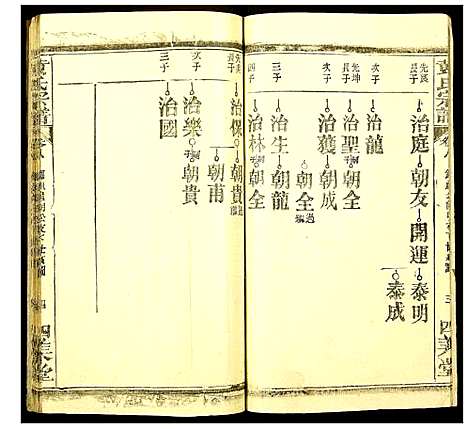 黄氏宗譜
卷八
三
四美堂
先良
長子
治庭
朝友
開運
泰明
泰成
次子
治龍
先坤
長子
治聖
朝全
次子
治獲
朝成
朝全
三子
治生
朝龍
四子
治林
朝全
先
長子
治保
朝貴
朝甫
次子
治樂
朝貴
三子
治國
黄氏宗譜
卷八
四
四美堂